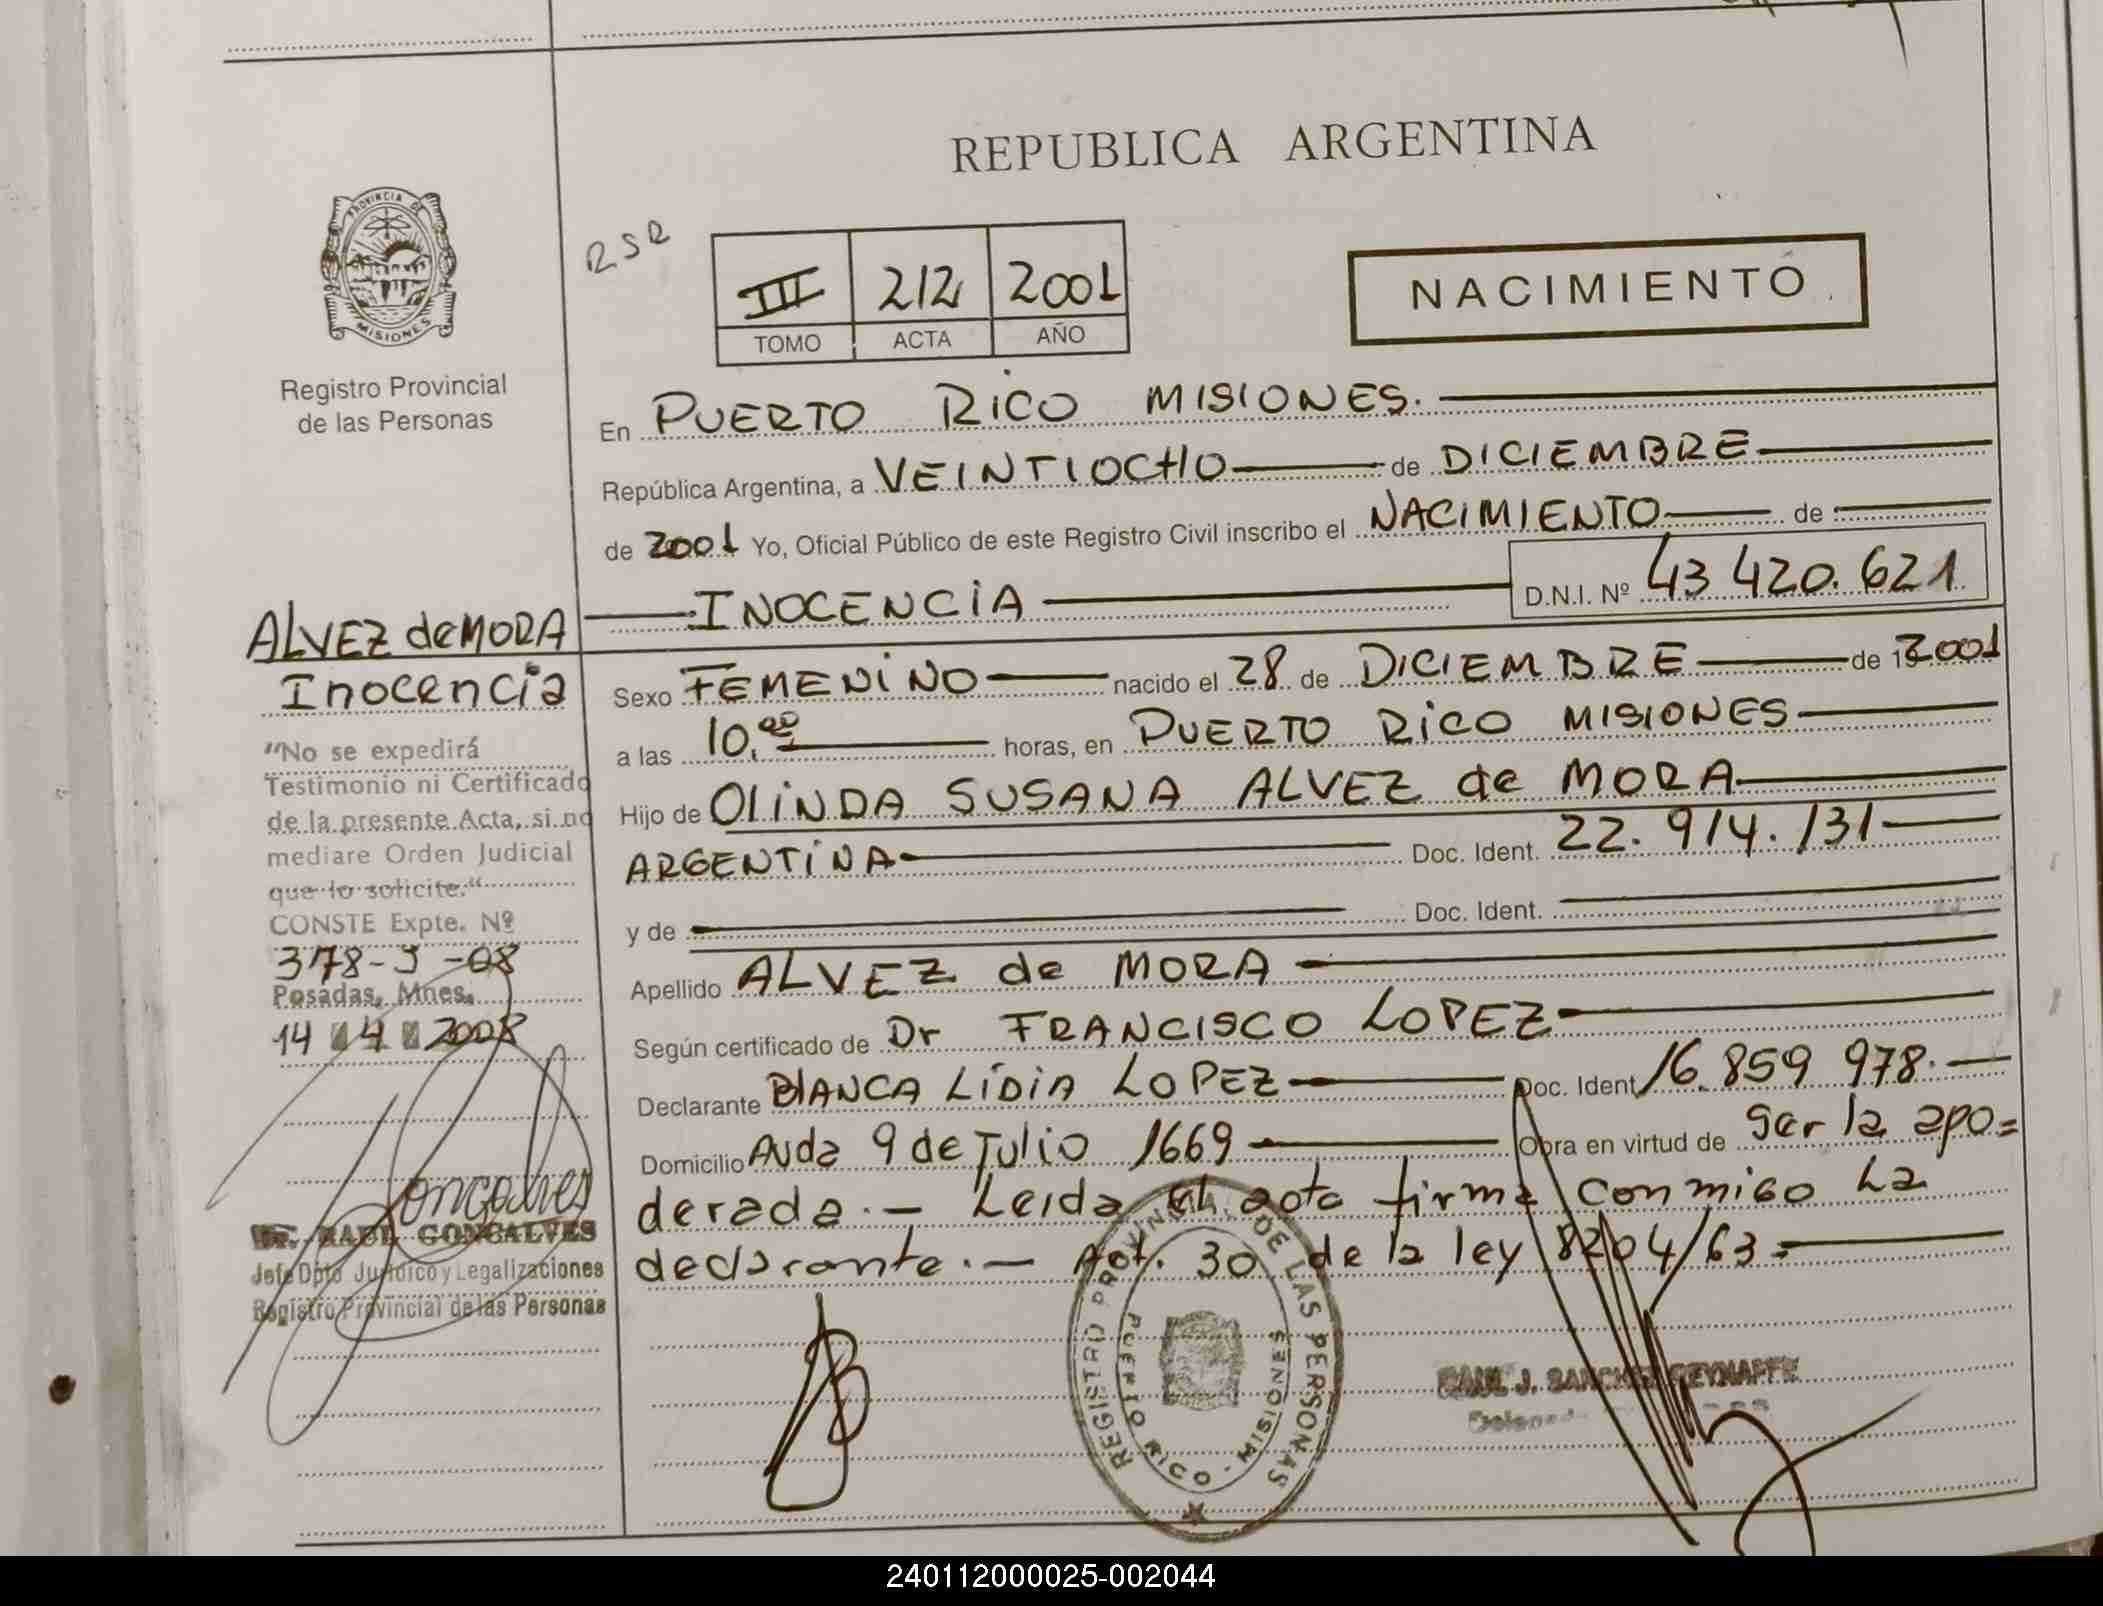 REPUBLICA ARGENTINA
PROVINCIA DE MISIONES
Registro Provincial
de las Personas
RSR
III 212 2001
TOMO ACTA AÑO
NACIMIENTO
En PUERTO RICO MISIONES.
República Argentina, a VEINTIOCHO de DICIEMBRE
de 2001 Yo, Oficial Público de este Registro Civil inscribo el NACIMIENTO de
INOCENCIA D.N.I. Nº 43 420.621
Sexo FEMENINO nacido el 28 de DICIEMBRE de 2001
a las 10,00 horas, en PUERTO RICO MISIONES
Hijo de OLINDA SUSANA ALVEZ de MORA
ARGENTINA Doc. Ident. 22.914.131
y de Doc. Ident.
Apellido ALVEZ de MORA
Según certificado de Dr FRANCISCO LOPEZ
Declarante BLANCA LIDIA LOPEZ Doc. Ident. 16.859 978.
Domicilio Avda 9 de Julio 1669 Obra en virtud de ser la apo=
derada.- Leida el acta firma conmigo La
declarante.- Act. 30 de la ley 8204/63=
ALVEZ de MORA
Inocencia
"No se expedirá
Testimonio ni Certificado
de la presente Acta, si no
mediare Orden Judicial
que lo solicite."
CONSTE Expte. Nº
378-J-08
Posadas, Mnes.
14 4 2008
Goncalves
Dr. RAUL GONCALVES
Jefe Dpto Jurídico y Legalizaciones
Registro Provincial de las Personas
REGISTRO PROVINCIAL DE LAS PERSONAS
PUERTO RICO - MISIONES
RAUL J. SANCHEZ
240112000025-002044